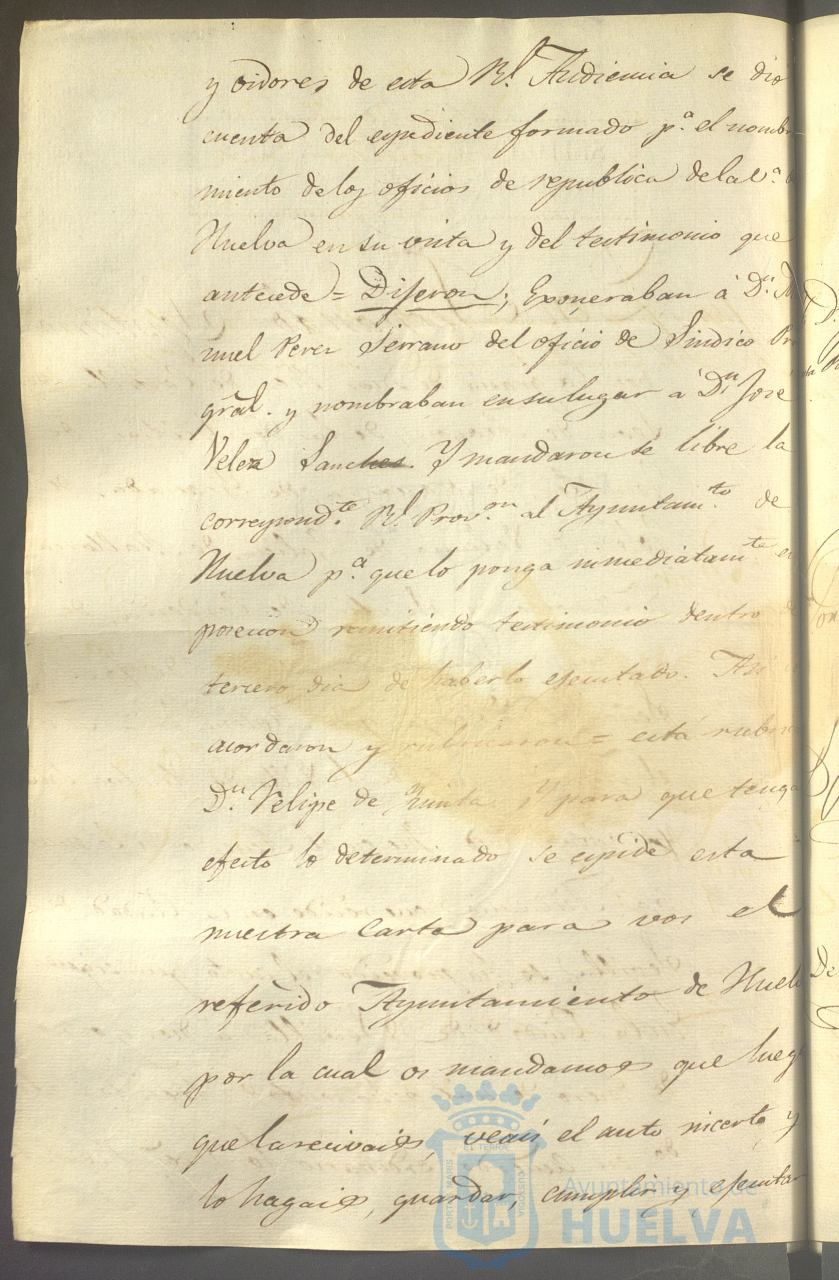 y oidores de esta Rl. Audiencia se dio
cuenta del expediente formado pa. el nombr
miento de los oficios de republica de la va.
Huelva en su vista y del testimonio que
antecede = Dijeron; Exoneraban á Dn. M
nuel Perez Serrano del oficio de Sindico Pr
gral. y nombraban en su lugar á Dn José
Velez Sanches. Y mandaron se libre la
correspondte. Rl. Provon. al Ayuntamto. de
Huelva pa. que lo ponga inmediatamte en
posecion remitiendo testimonio dentro d
tercero dia de haberlo ejecutado. Asi
acordaron y rubricaron = está rubri
Dn. Velipe de Zunta. Y para que tenga
efecto lo determinado se expide esta
nuestra Carta para vos el
referido Ayuntamiento de Huelv
por la cual os mandamos que lueg
que la recivais, veais el auto incerto, y
lo hagais, guardar, cumplir y ejecutar
Ayuntamiento de
HUELVA